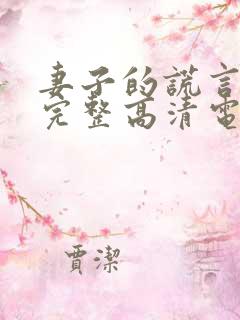 妻子的謊言
完整高清電
賈潔